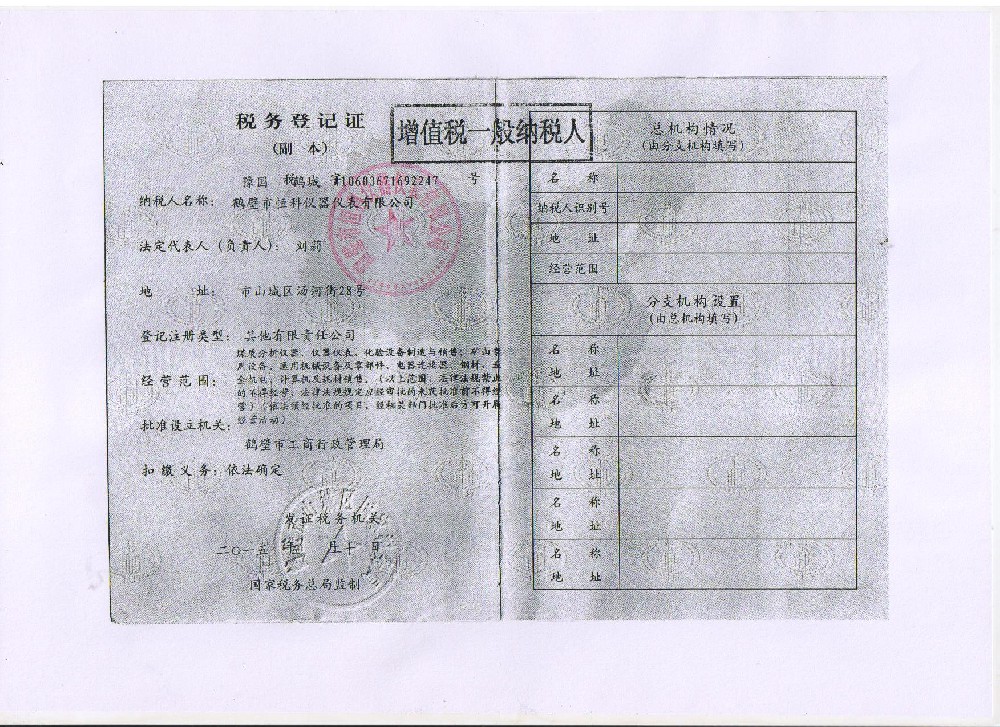 税务登记证
(副 本)
增值税一般纳税人
豫国 税 鹤城 字 410600671692247 号
纳税人名称: 鹤壁市恒科仪器仪表有限公司
法定代表人(负责人): 刘莉
地 址: 市山城区汤河街28号
登记注册类型: 其他有限责任公司
经营范围:
煤质分析仪器、仪器仪表、化验设备制造与销售; 矿山专
用设备、通用机械设备及零部件、电器连接器、钢材、五
金机电、计算机及耗材销售。(以上范围, 法律法规禁止
的不得经营; 法律法规规定应经审批的未获批准前不得经
营)(依法须经批准的项目, 经相关部门批准后方可开展
经营活动)
批准设立机关:
鹤壁市工商行政管理局
扣缴义务: 依法确定
发证税务机关
二〇一五年 月十 日
国家税务总局监制
总机构情况
(由分支机构填写)
名 称
纳税人识别号
地 址
经营范围
分支机构设置
(由总机构填写)
名 称
地 址
名 称
地 址
名 称
地 址
名 称
地 址
名 称
地 址